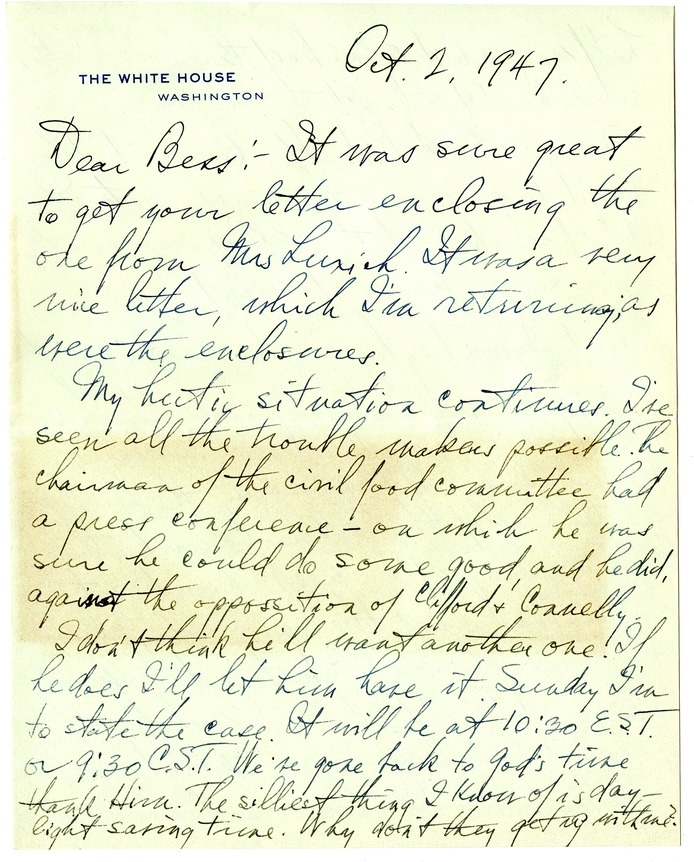 Oct. 2, 1947.
THE WHITE HOUSE
WASHINGTON
Dear Bess:- It was sure great
to get your letter enclosing the
one from Mrs. It was a very
nice letter, which I'm returning, as
were the enclosures.
My hectic situation continues. I've
seen all the trouble makers possible. The
chairman of the civil food committee had
a press conference - on which he was
sure he could do some good, and he did,
against the oppossition of Clifford & Connelly.
I don't think he'll want another one. If
he does I'll let him have it. Sunday I'm
to state the case. It will be at 10:30 E.S.T.
or 9:30 C.S.T. We've gone back to God's time
thank Him. The silliest thing I know of is day-
light saving time. Why don't they get up with me.